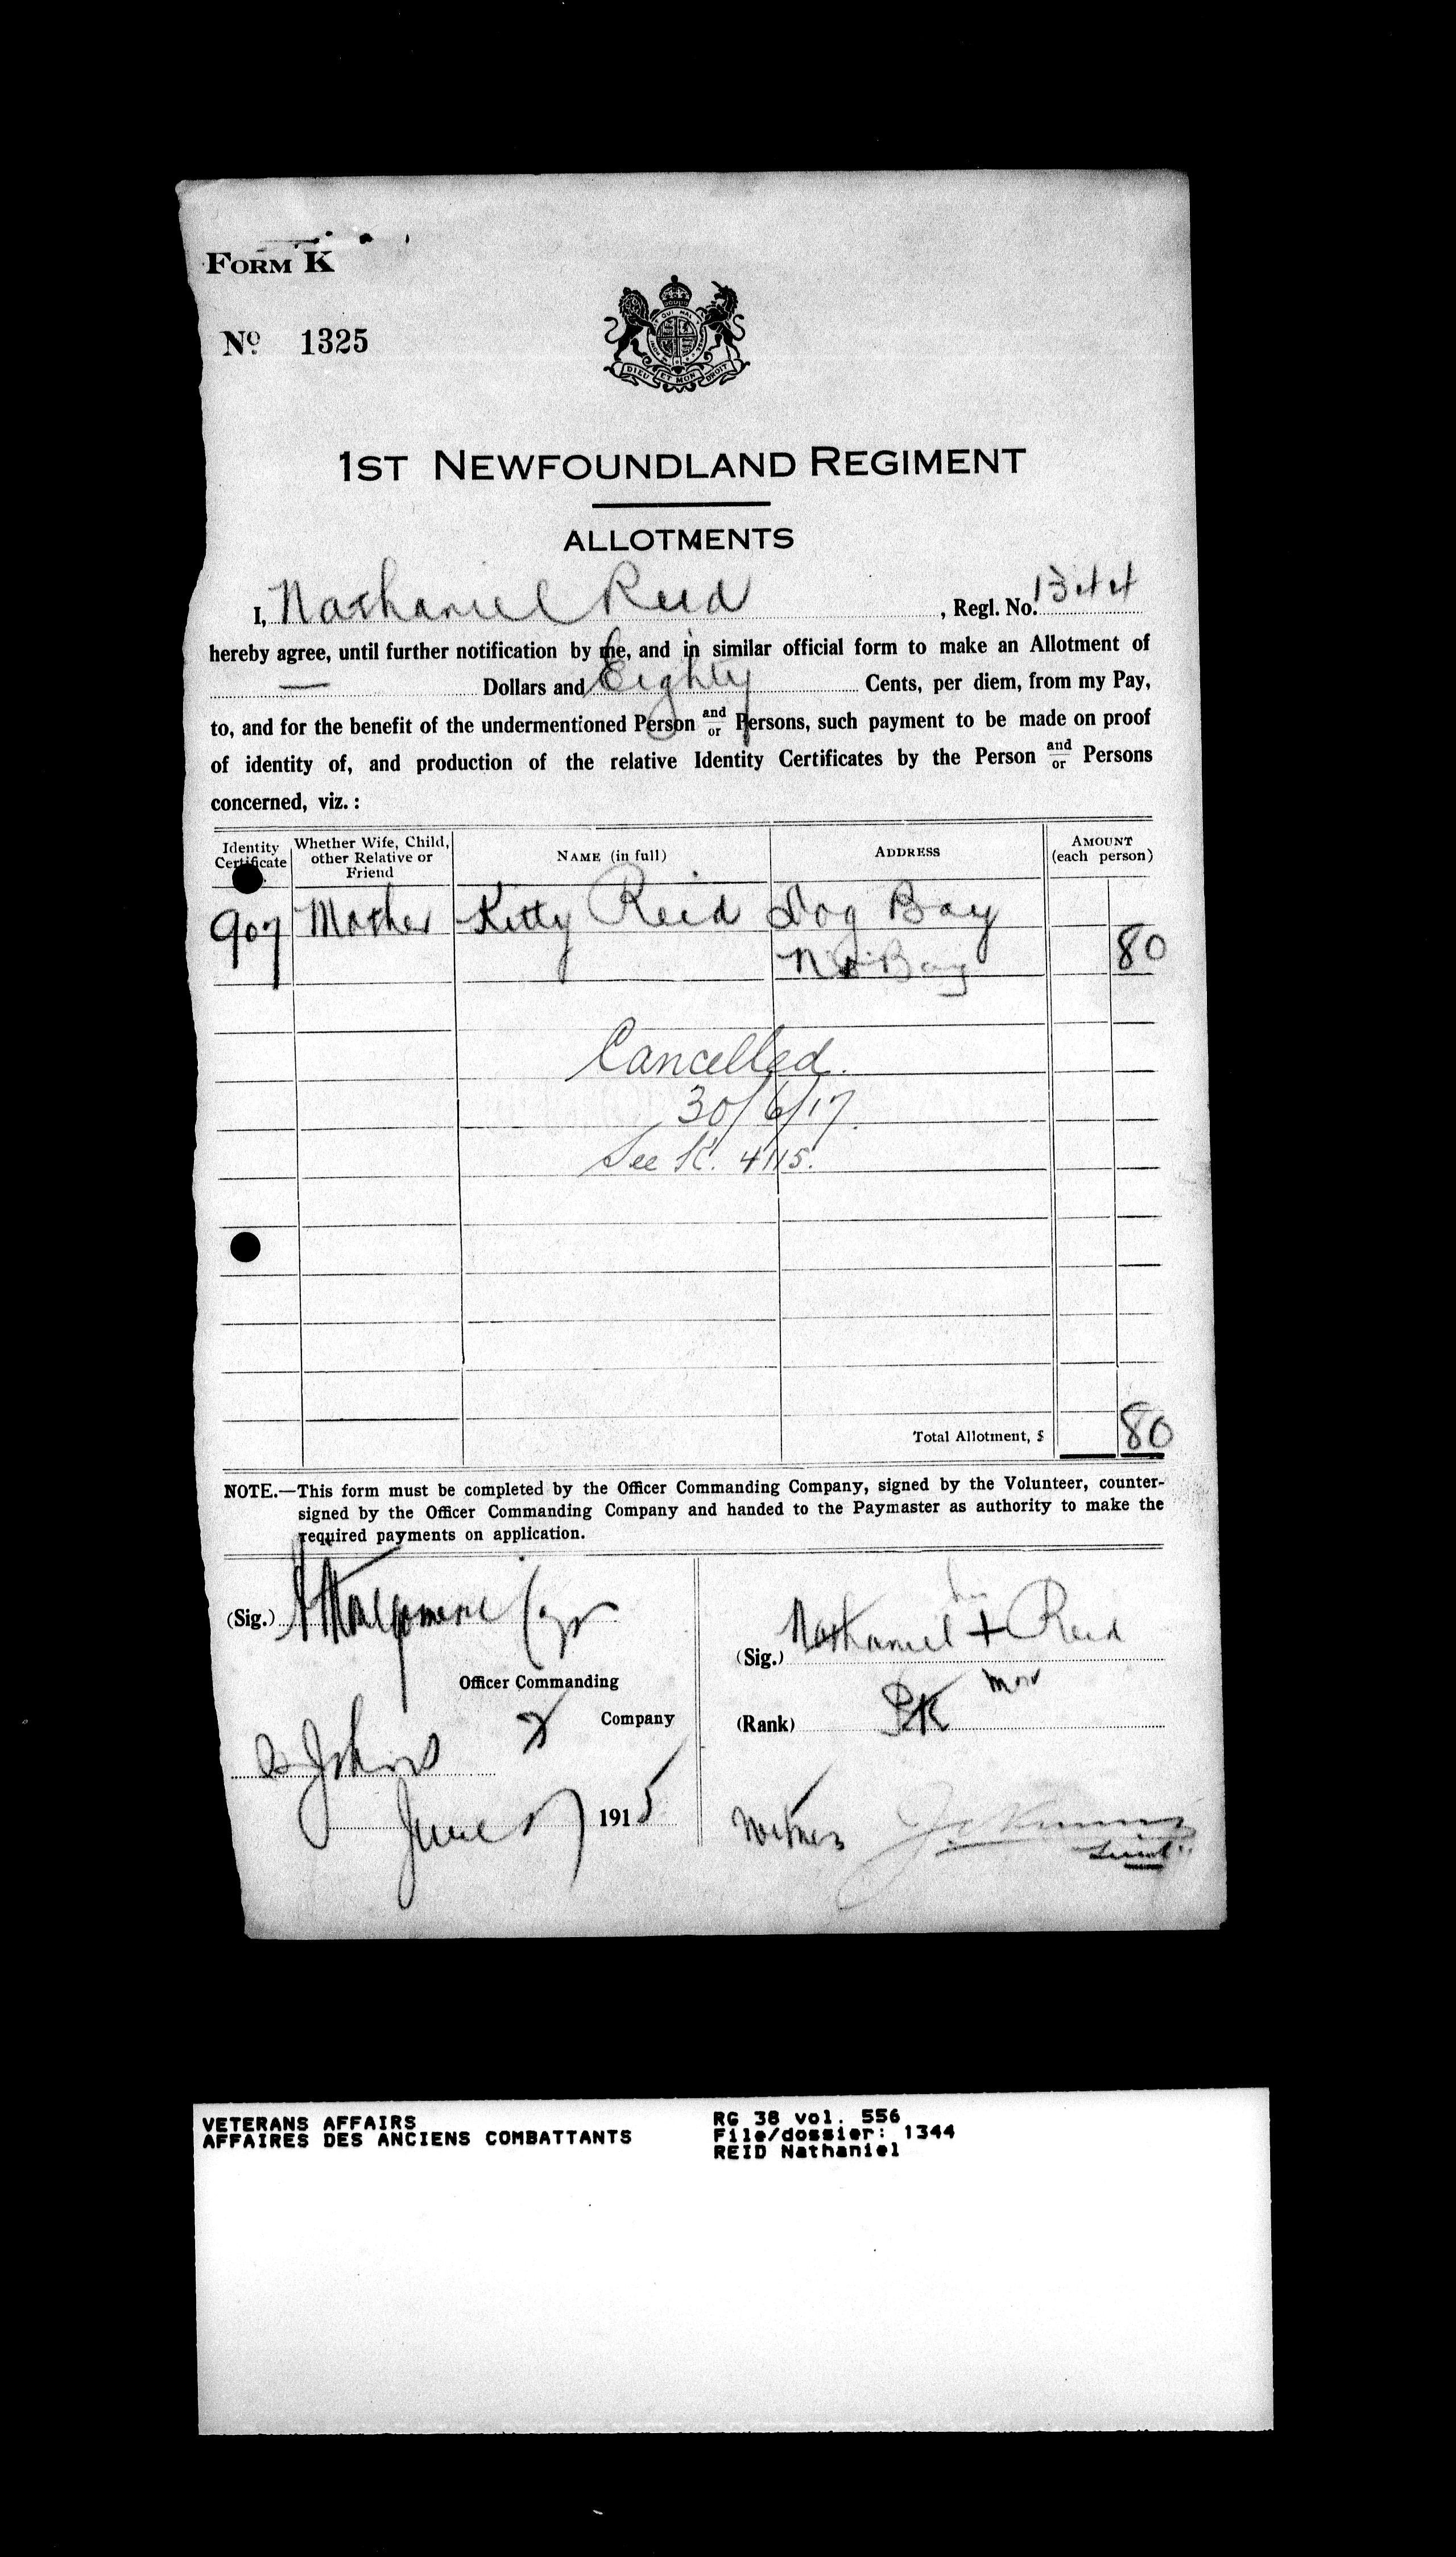 FORM K
No. 1325
DIEU ET MON DROIT
1ST NEWFOUNDLAND REGIMENT
ALLOTMENTS
I, Nathaniel Reid, Regl. No. 1344
hereby agree, until further notification by me, and in similar official form to make an Allotment of
— Dollars and Eighty Cents, per diem, from my Pay,
to, and for the benefit of the undermentioned Person and/or Persons, such payment to be made on proof
of identity of, and production of the relative Identity Certificates by the Person and/or Persons
concerned, viz. :
Identity Certificate Whether Wife, Child, other Relative or Friend NAME (in full) ADDRESS AMOUNT (each person)
907 Mother Kitty Reid Dog Bay
Bay 80
Cancelled.
30/6/17.
See K. 4115.
Total Allotment, $ 80
NOTE.—This form must be completed by the Officer Commanding Company, signed by the Volunteer, counter-
signed by the Officer Commanding Company and handed to the Paymaster as authority to make the
required payments on application.
(Sig.)
Officer Commanding
Company
St Johns
June 1915
his
(Sig.) Nathaniel + Reid
mark
(Rank)
Witness
Lieut.
VETERANS AFFAIRS
AFFAIRES DES ANCIENS COMBATTANTS
RG 38 vol. 556
File/dossier: 1344
REID Nathaniel